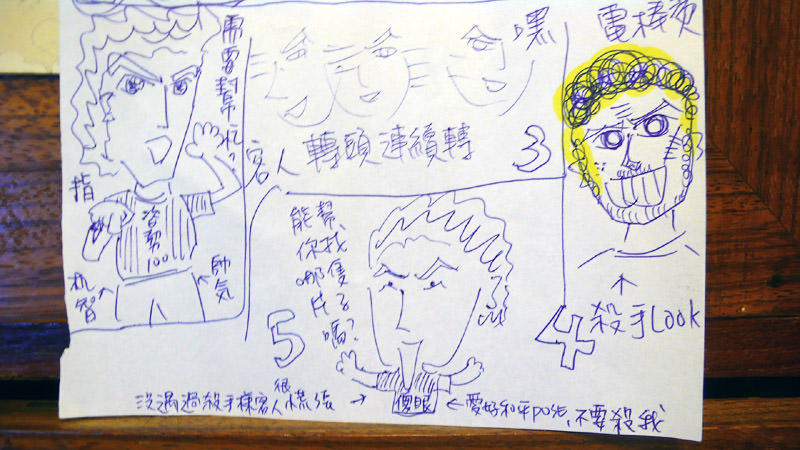 需要幫忙?
指
机智
帥気
嘿
客人轉頭連續轉
3
電棒燙
4
殺手Look
能幫
你找
哪隻
片子
嗎?
5
沒遇過殺手樣客人很慌張
傻眼
愛好和平pose,不要殺我